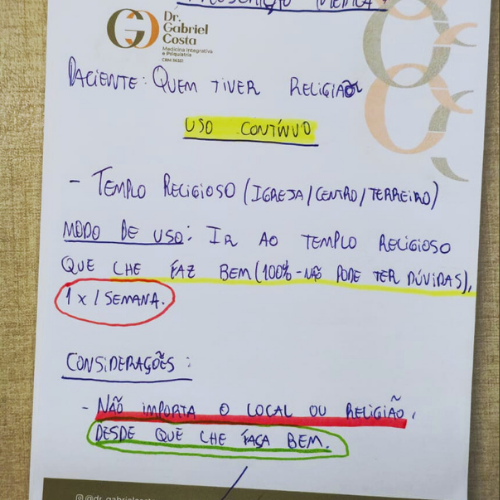 PRESCRIÇÃO MÉDICA
Dr.
Gabriel
Costa
Medicina Integrativa
e Psiquiatria
PACIENTE: QUEM TIVER RELIGIÃO
USO CONTÍNUO
- TEMPLO RELIGIOSO (IGREJA/CENTRO/TERREIRO)
MODO DE USO: IR AO TEMPLO RELIGIOSO
QUE LHE FAZ BEM (100% - NÃO PODE TER DÚVIDAS),
1 x / SEMANA.
CONSIDERAÇÕES:
- NÃO IMPORTA O LOCAL OU RELIGIÃO,
DESDE QUE LHE FAÇA BEM.